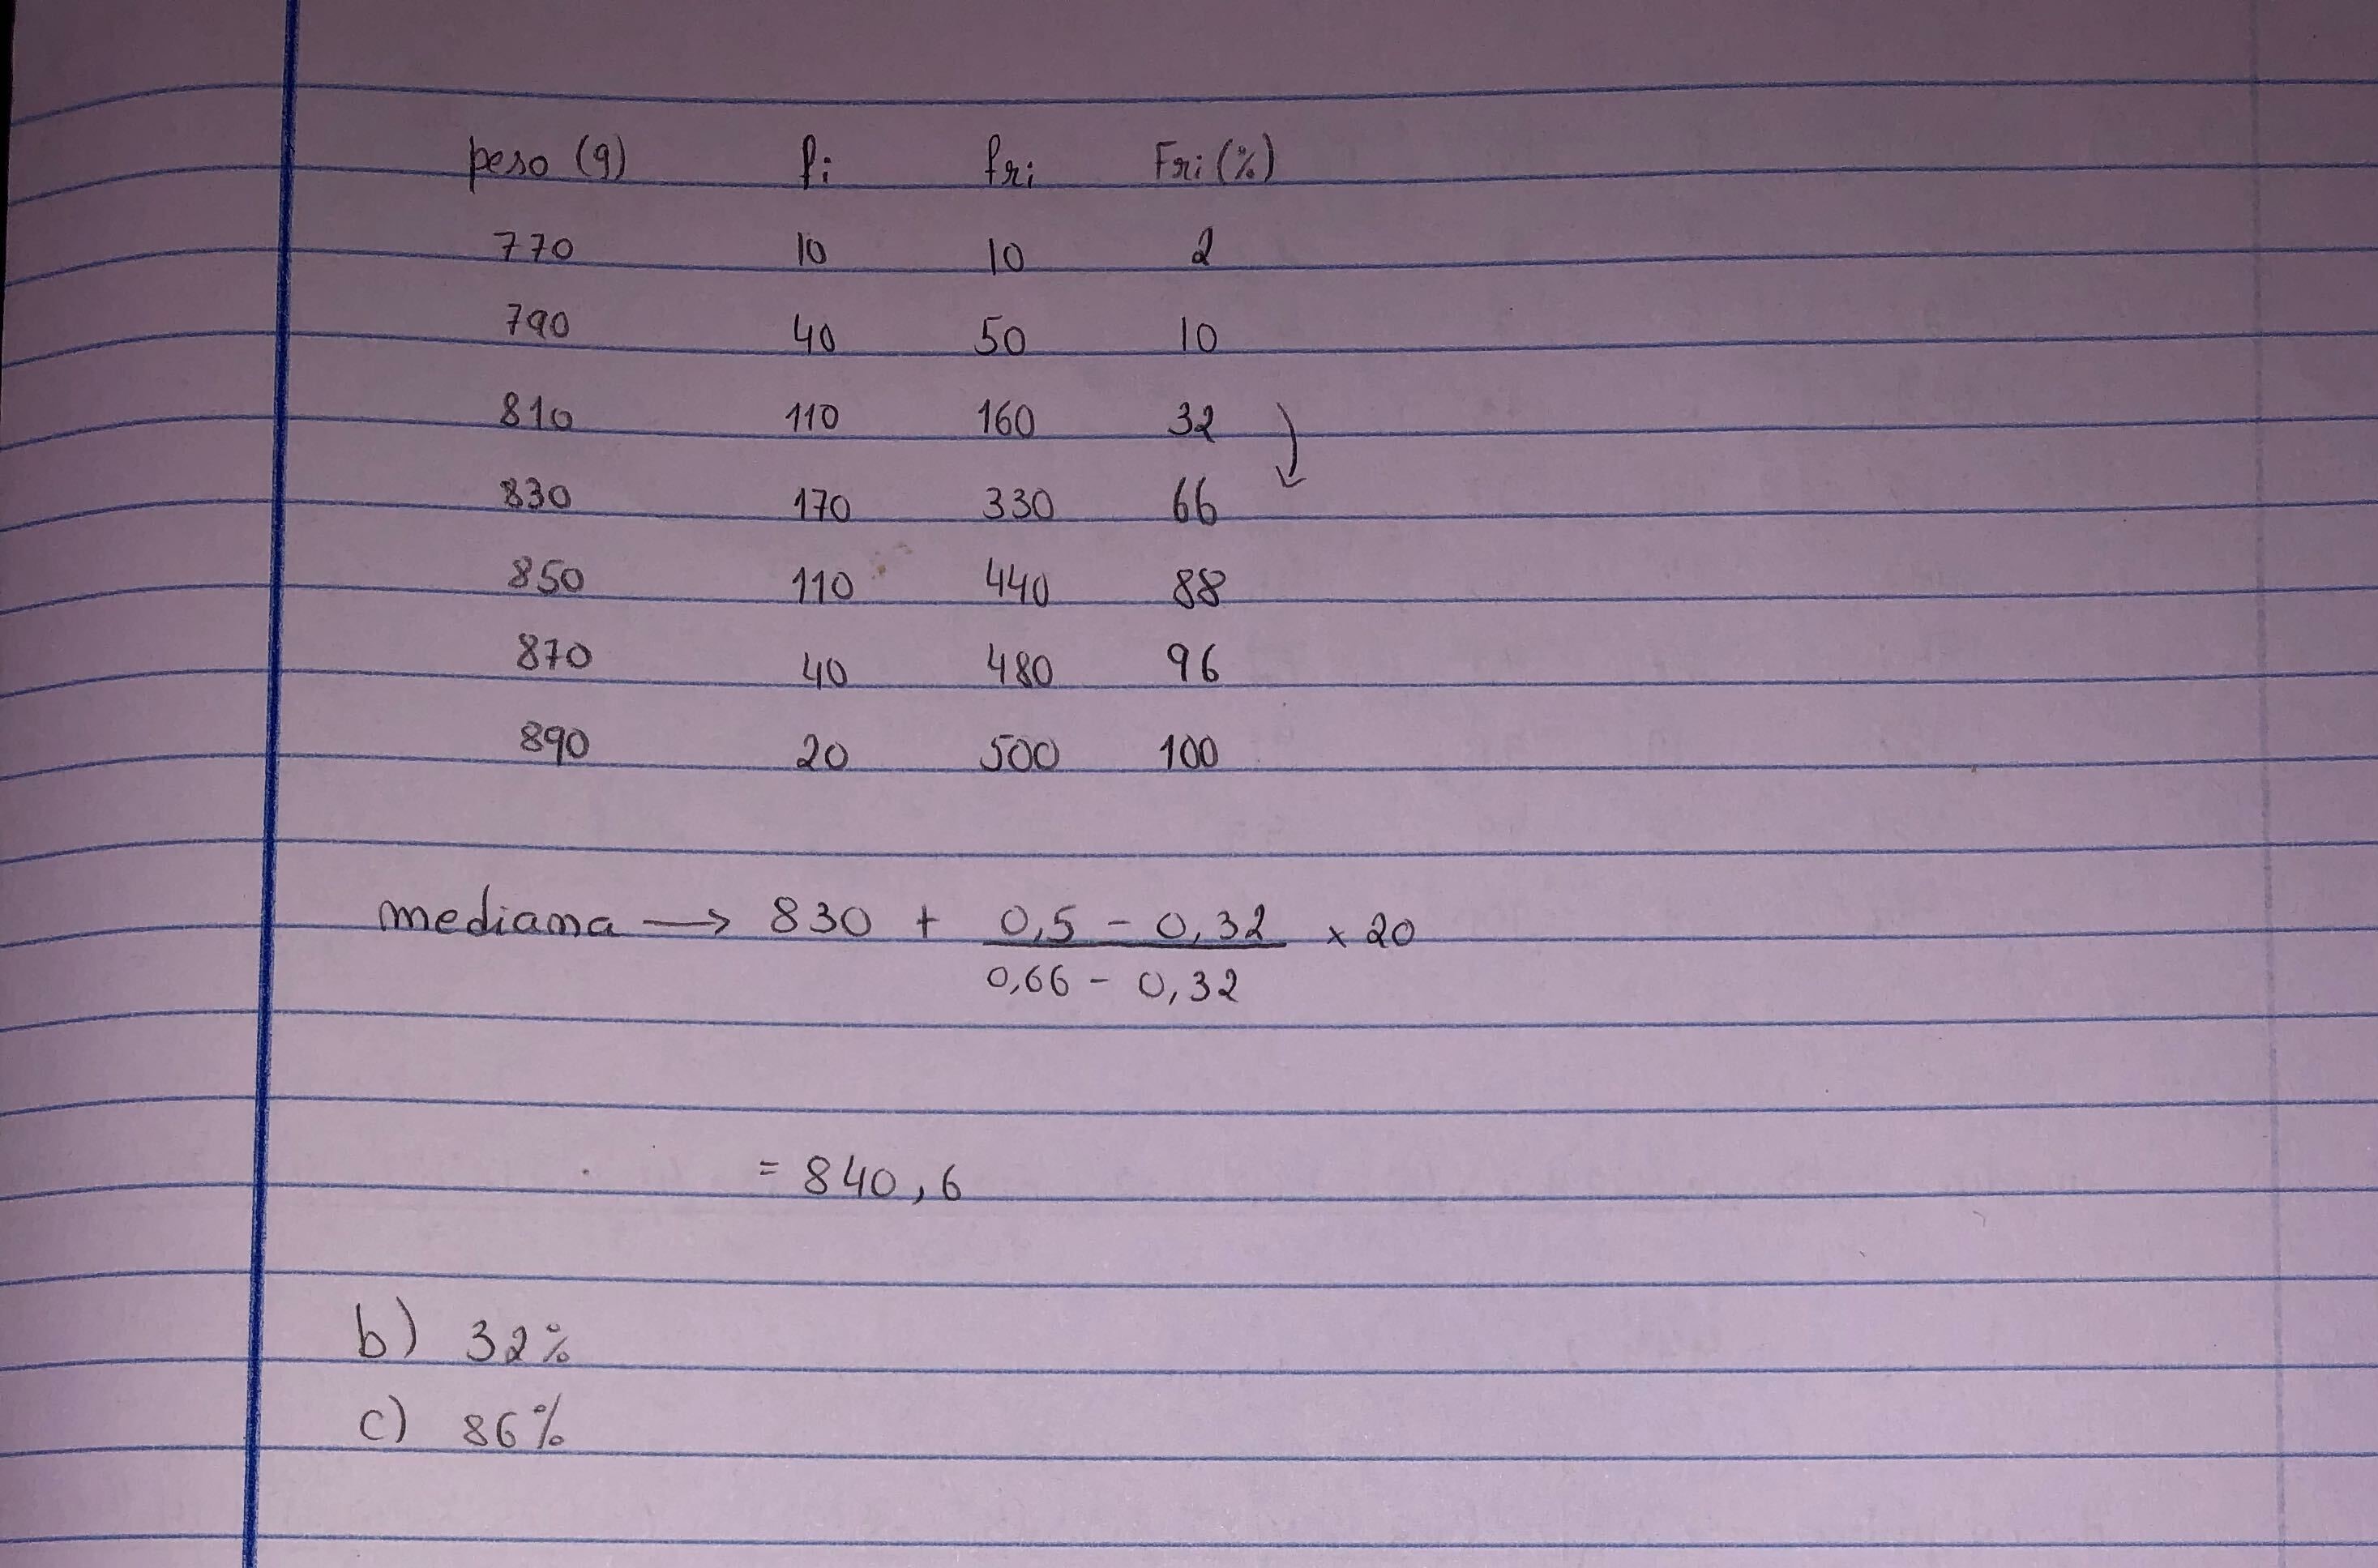 peso (g) fi fri Fri (%)
770 10 10 2
790 40 50 10
810 110 160 32
830 170 330 66
850 110 440 88
870 40 480 96
890 20 500 100
mediana → 830 + 0,5 - 0,32 x 20
0,66 - 0,32
= 840,6
b) 32%
c) 86%